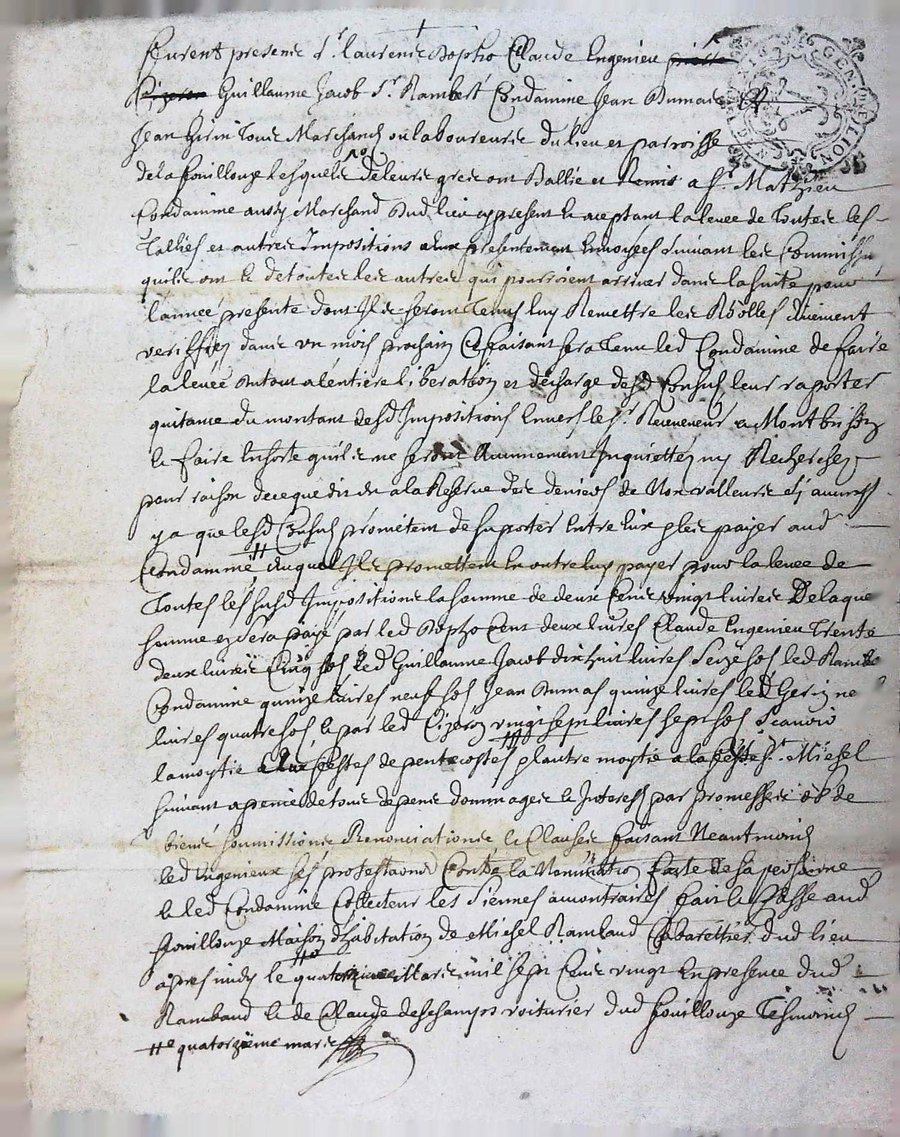 furent presents sr. laurence Bopho Claude Engenieu
Guillaume Jacob sr. Rambert Condamine Jean Dumas
Jean Gerin tous Marchands ou laboureurs du lieu et parroisse
de la fouillouze lesquels de leurs grés ont Ballié et Remis a sr. Mathieu
Condamine aussy Marchand dud. lieu cy present & aceptant la levee de toutes les
Tallies et autres Impositions a eux presentement Envoyées suivant les Commissions
quils ont & de toutes les autres qui pourroient arriver dans la suite pour
l'année presente dont Ils seront tenus luy Remettre les Rolles duement
veriffiés dans un mois prochain Ce faisant sera tenu led. Condamine de faire
la levée du tout a lentiere liberation et décharge desd. Consuls leur raporter
quitance du montant desd. Impositions Envers le sr. Receveur a Montbrison
& faire En sorte quils ne seront Aucunement Inquiettés ny Recherchés
pour raison de ce que dit est a la Reserve des deniers de Non valleurs sy aucuns
y a que lesd. Consuls prométent de suporter Entre Eux & les payer aud.
Condamine auquel Ils promettent En outre luy payer pour la levee de
Toutes les susd. Impositions la somme de deux Cents vingt livres De laque
somme en sera payé par led. Bopho Cent deux livres Claude Engenieu trente
deux livres Cinq sols led. Guillaume Jacob dix huit livres Seize sols led. Rambert
Condamine quinze livres neuf sols Jean Dumas quinze livres led. Gerin ne
livres quatre sols & par led. Cizeron vingt sept livres sept sols Scavoir
la moytié aux festes de pentecostes & l'autre moytié a la feste st. Michel
suivant a peine de tous depens dommages & Interests par promesses ob. de
biens soumissions Renonciations & Clauses faisant Neantmoins
led. Engenieux ses protestaons Contre la Nominatio. faite de sa personne
& led. Condamine Collecteur les siennes au contraires fait & passé aud.
fouillouze Maison d'habitation de Michel Rambaud Cabarettier dud. lieu
apres midy le Mars mil sept Cents vingt En presence dud.
Rambaud & de Claude deschamps voiturier dud. fouillouze Tesmoins
# quatorzième mars